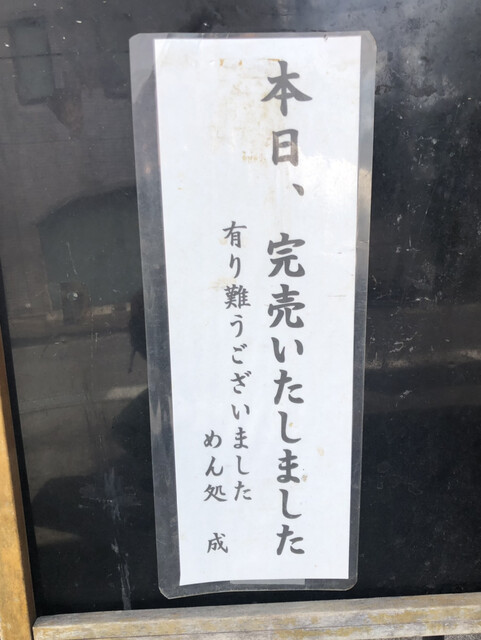 本日、完売いたしました
有り難うございました
めん処 成